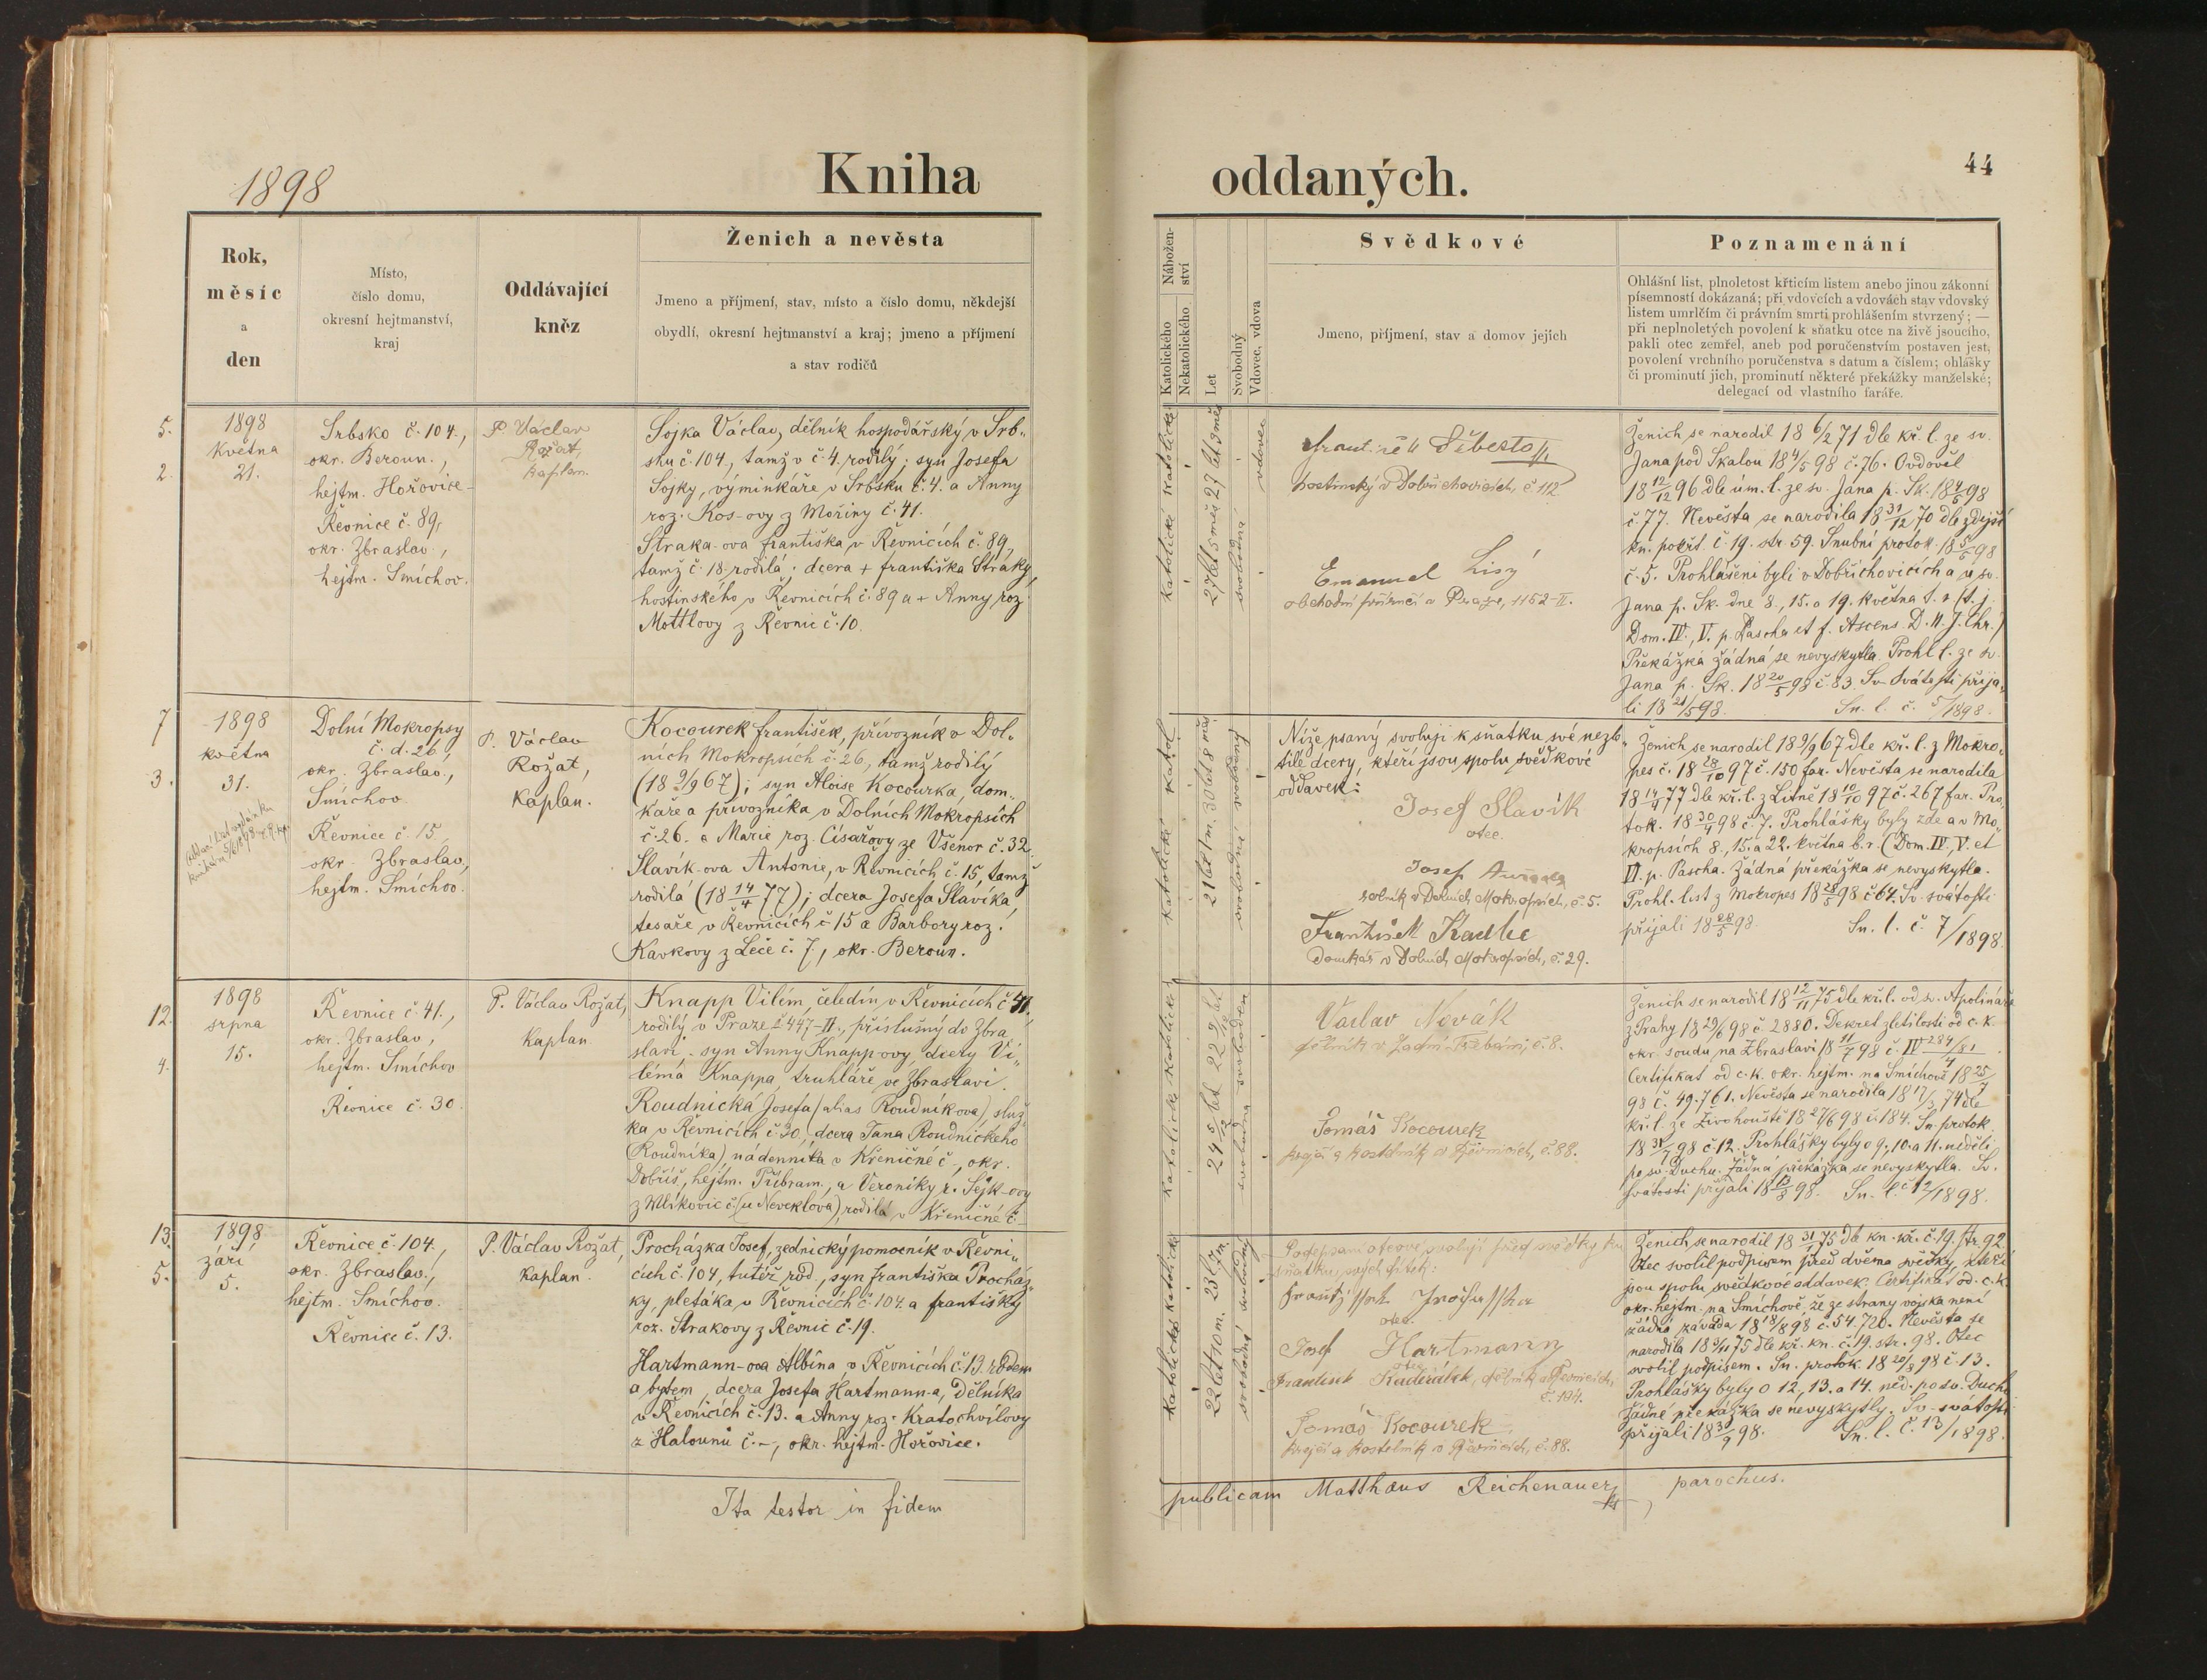 1898
Kniha
Rok,
měsíc
a
den
Místo,
číslo domu,
okresní hejtmanství,
kraj
Oddávající
kněz
Ženich a nevěsta
Jmeno a příjmení, stav, místo a číslo domu, někdejší
obydlí, okresní hejtmanství a kraj; jmeno a příjmení
a stav rodičů
5.
2.
1898
Května
21.
Srbsko č. 104.,
okr. Beroun.,
hejtm. Hořovice-
Řevnice č. 89,
okr. Zbraslav.,
hejtm. Smíchov.
P. Václav
Rožat,
kaplan.
Sojka Václav, dělník hospodářský v Srb„
sku č. 104., tamž v č. 4. rodilý; syn Josefa
Sojky, výminkáře v Srbsku č. 4. a Anny
roz. Kos-ovy z Mořiny č. 41.
Straka-ova Františka v Řevnicích č. 89,
tamž č. 18 rodilá; dcera + Františka Straky,
hostinského v Řevnicích č. 89 a + Anny roz.
Mottlovy z Řevnic č. 10.
7
3.
1898
května
31.
Dolní Mokropsy
č. d. 26,
okr. Zbraslav.,
Smíchov
Řevnice č. 15.,
okr. Zbraslav,
hejtm. Smíchov.
P. Václav
Rožat,
kaplan.
Kocourek František, přívozník v Dol„
ních Mokropsích č. 26, tamž rodilý
(18 9/9 67); syn Aloise Kocourka, dom„
káře a přívozníka v Dolních Mokropsích
č. 26. a Marie roz. Císařovy ze Všenor č. 32.
Slavík-ova Antonie, v Řevnicích č. 15, tamž
rodilá (18 14/4 77); dcera Josefa Slavíka,
tesaře v Řevnicích č 15 a Barbory roz.
Kavkovy z Leče č. 7, okr. Beroun.
12.
4.
1898
srpna
15.
Řevnice č. 41.,
okr. Zbraslav,
hejtm. Smíchov
Řevnice č. 30.
P. Václav Rožat,
kaplan
Knapp Vilém, čeledín v Řevnicích č 41,
rodilý v Praze č 447-II., příslušný do Zbra„
slavi - syn Anny Knapp-ovy, dcery Vi„
léma Knappa, truhláře ve Zbraslavi.
Roudnická Josefa (alias Roudníkova), služ„
ka v Řevnicích č 30, dcera Jana Roudnického
(Roudníka) nádenníka v Křeničné č-, okr.
Dobříš, hejtm. Příbram., a Veroniky r. Sejk-ovy
z Mlíkovic č (u Neveklova), rodilá v Křeničné č-
13.
5.
1898
září
5.
Řevnice č. 104.,
okr. Zbraslav.,
hejtm. Smíchov.
Řevnice č. 13.
P. Václav Rožat,
kaplan.
Procházka Josef, zednický pomocník v Řevni„
cích č. 104, tutéž rod., syn Františka Procház„
ky, pletáka v Řevnicích č. 104. a Františky
roz. Strakovy z Řevnic č. 19.
Hartmann-ova Albína v Řevnicích č. 13. rodem
a bytem, dcera Josefa Hartmann-a, dělníka
v Řevnicích č. 13. a Anny roz. Kratochvílovy
z Halounů č. -, okr. hejtm. Hořovice.
Ita testor in fidem
44
oddaných.
Nábožen-
ství
Katolického
Nekatolického
Let
Svobodný
Vdovec, vdova
Svědkové
Jmeno, příjmení, stav a domov jejich
Poznamenání
Ohlášní list, plnoletost křticím listem anebo jinou zákonní
písemností dokázaná; při vdovcích a vdovách stav vdovský
listem umrlčím či právním smrti prohlášením stvrzený; —
při neplnoletých povolení k sňatku otce na živě jsoucího,
pakli otec zemřel, aneb pod poručenstvím postaven jest,
povolení vrchního poručenstva s datum a číslem; ohlášky
či prominutí jich, prominutí některé překážky manželské;
delegací od vlastního faráře.
katolické katolické
27 let 5 měs 27 let 3 měs
svobodná
vdovec
hostinský v Dobřichovicích, č 112
Emanuel Lisý
obchodní příručí v Praze, 1152-II.
Ženich se narodil 18 6/2 71 dle kř. l. ze sv.
Jana pod Skalou 18 4/5 98 č. 76. Ovdověl
18 12/12 96 dle úm. l. ze sv. Jana p. Sk. 18 4/5 98
č. 77. Nevěsta se narodila 18 31/12 70 dle zdejší
kn. pokřt. č. 19. str. 59. Snubní protok. 18 5/5 98
č. 5. Prohlášeni byli v Dobřichovicích a u sv.
Jana p. Sk. dne 8., 15. a 19. května t. r. (t. j.
Dom. IV., V. p. Pascha et f. Ascens. D. N. J. Chr.)
Překážka žádná se nevyskytla. Prohl. l. ze sv.
Jana p. Sk. 18 20/5 98 č. 83. Sv. svátosti přija„
li 18 21/5 98. Sn. l. č. 5/1898.
katolické katol.
21 let 1 m. 30 let 8 měs
svobodná svobodný
Níže psaný svoluji k sňatku své nezle„
tilé dcery, kteří jsou spolu svědkové
oddavek:
Josef Slavík
otec.
Josef
rolník v Dolních Mokropsích, č. 5.
František Kadlec
domkář v Dolních Mokropsích, č. 29.
Ženich se narodil 18 9/9 67 dle kř. l. z Mokro„
pes č. 18 28/10 97 č. 150 far. Nevěsta se narodila
18 14/4 77 dle kř. l. z Litně 18 10/10 97 č. 267 far. Pro„
tok. 18 30/4 98 č. 7. Prohlášky byly zde a v Mo„
kropsích 8., 15. a 22. května b. r. (Dom. IV., V. et
VI. p. Pascha. Žádná překážka se nevyskytla.
Prohl. list z Mokropes 18 28/5 98 č 64. Sv. svátosti
přijali 18 28/5 98. Sn. l. č. 7/1898.
katolické katolické
24 5/12 let 22 9/12 let
svobodná svoboden
Václav Novák
dělník v Zadní Třebáni, č. 8.
Tomáš Kocourek
krejčí a kostelník v Řevnicích, č. 88.
Ženich se narodil 18 12/11 75 dle kř. l. od sv. Apolináře
z Prahy 18 29/6 98 č 2880. Dekret zletilosti od c. k.
okr. soudu na Zbraslavi 18 11/7 98 č. IV 284/81 4
Certifikat od c. k. okr. hejtm. na Smíchově 18 25/7
98 č. 49.761. Nevěsta se narodila 18 17/3 74 dle
kř. l. ze Živohouště 18 27/6 98 č. 184. Sn. protok.
18 31/7 98 č 12. Prohlášky byly o 9., 10. a 11. neděli
po sv. Duchu. Žádná překážka se nevyskytla. Sv.
svátosti přijali 18 13/8 98. Sn. l. č 12/1898.
katolické katolické
22 let 10 m. 23 l. 7 m.
svobodná svobodný
Podepsaní otcové svolují před svědky ku
sňatku svých dítek:
otec.
Josef Hartmann
otec
František Kadeřábek, dělník v Řevnicích,
č. 194.
Tomáš Kocourek
krejčí a kostelník v Řevnicích, č. 88.
Ženich se narodil 18 31/1 75 dle kn. kř. č. 19. str. 92
Otec svolil podpisem před dvěma svědky, kteří
jsou spolu svědkové oddavek. Certifikát od c. k.
okr. hejtm. na Smíchově, že ze strany vojska není
žádná závada 18 18/8 98 č. 54.720. Nevěsta se
narodila 18 3/11 75 dle kř. kn. č. 19. str. 98. Otec
svolil podpisem. Sn. protok. 18 20/8 98 č. 13.
Prohlášky byly o 12., 13. a 14. ned. po sv. Duchu
Žádné překážka se nevyskytly. Sv. svátosti
přijali 18 3/9 98. Sn. l. č. 13/1898.
publicam Matthæus Reichenauer, parochus.